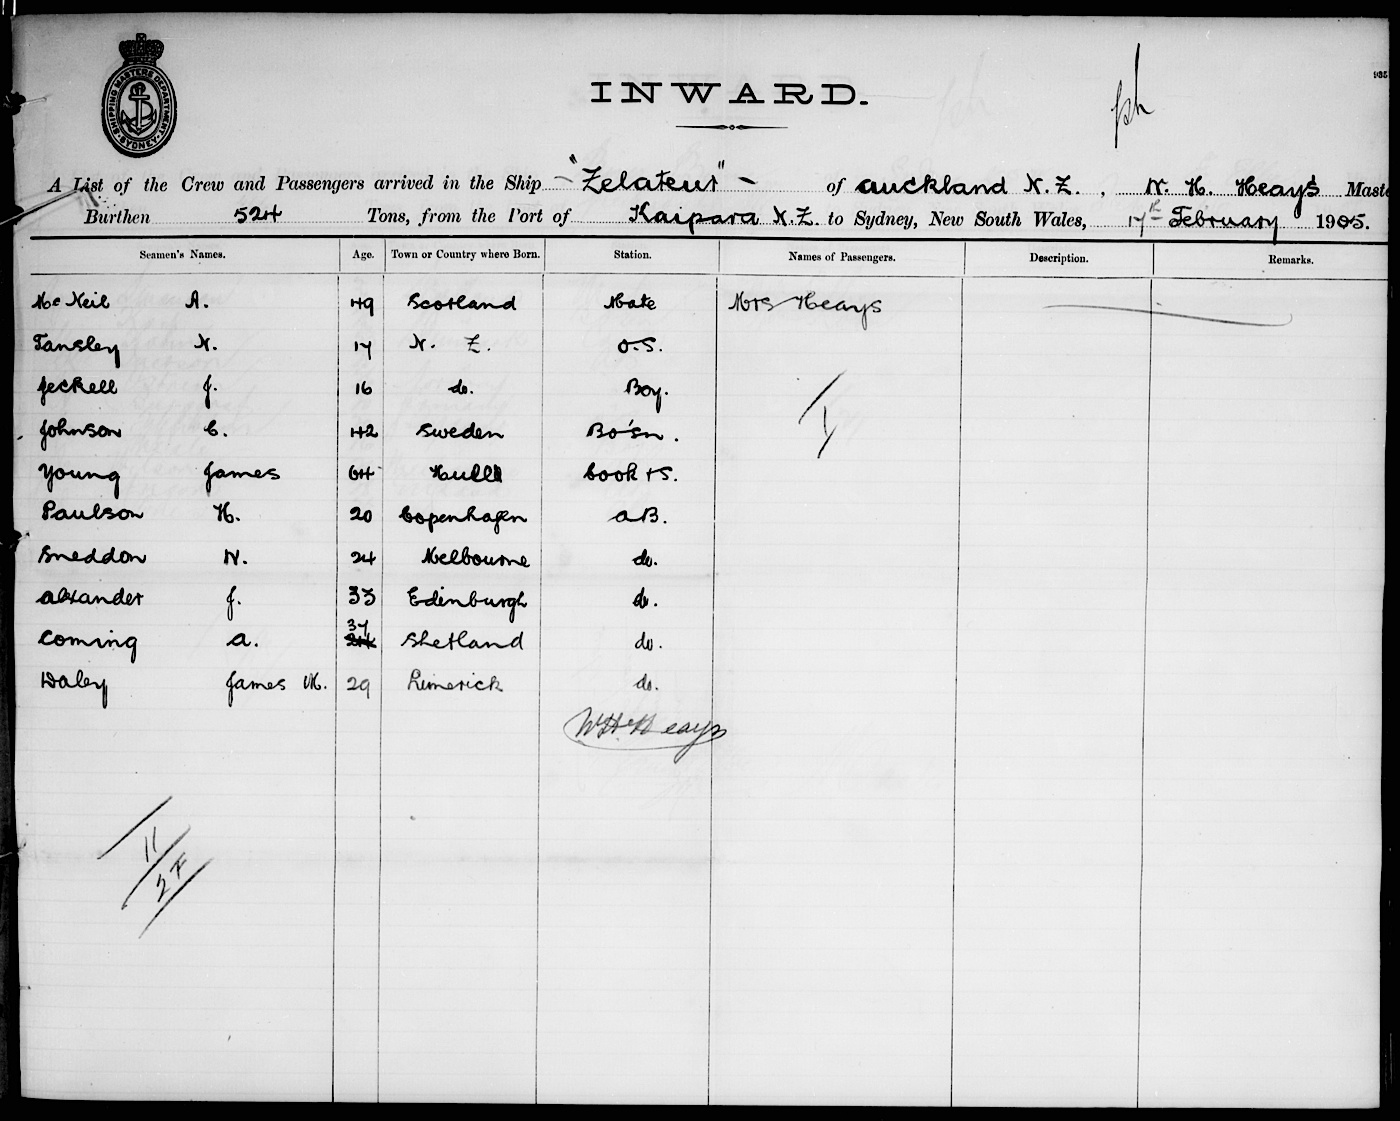 SHIPPING MASTERS DEPARTMENT SYDNEY
INWARD.
A List of the Crew and Passengers arrived in the Ship "Zelateur" of Auckland N.Z., W. H. Heays Maste
Burthen 524 Tons, from the Port of Kaipara N.Z. to Sydney, New South Wales, 17th February 1905.
Seamen's Names. Age. Town or Country where Born. Station. Names of Passengers. Description. Remarks.
McNeil A. 49 Scotland Mate Mrs Heays
Tansley N. 17 N. Z. O.S.
Jeckell J. 16 do. Boy.
Johnson C. 42 Sweden Bo'sn.
Young James 64 Hull Cook + S.
Paulson H. 20 Copenhagen AB.
Sneddon W. 24 Melbourne do.
Alxander J. 33 Edinburgh do.
Coming A. 37 Shetland do.
Daley James M. 29 Limerick do.
WH Heays
11